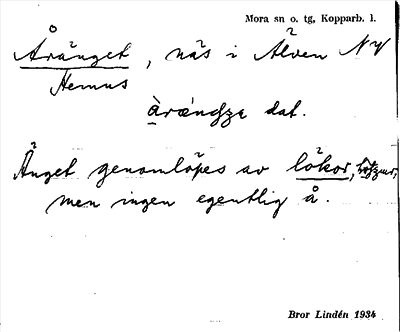 Mora sn o. tg, Kopparb. l.
Åränget, näs i Älven NV
Hemus
dat.
Änget genomlöpes av lökor,
men ingen egentlig å.
Bror Lindén 1934